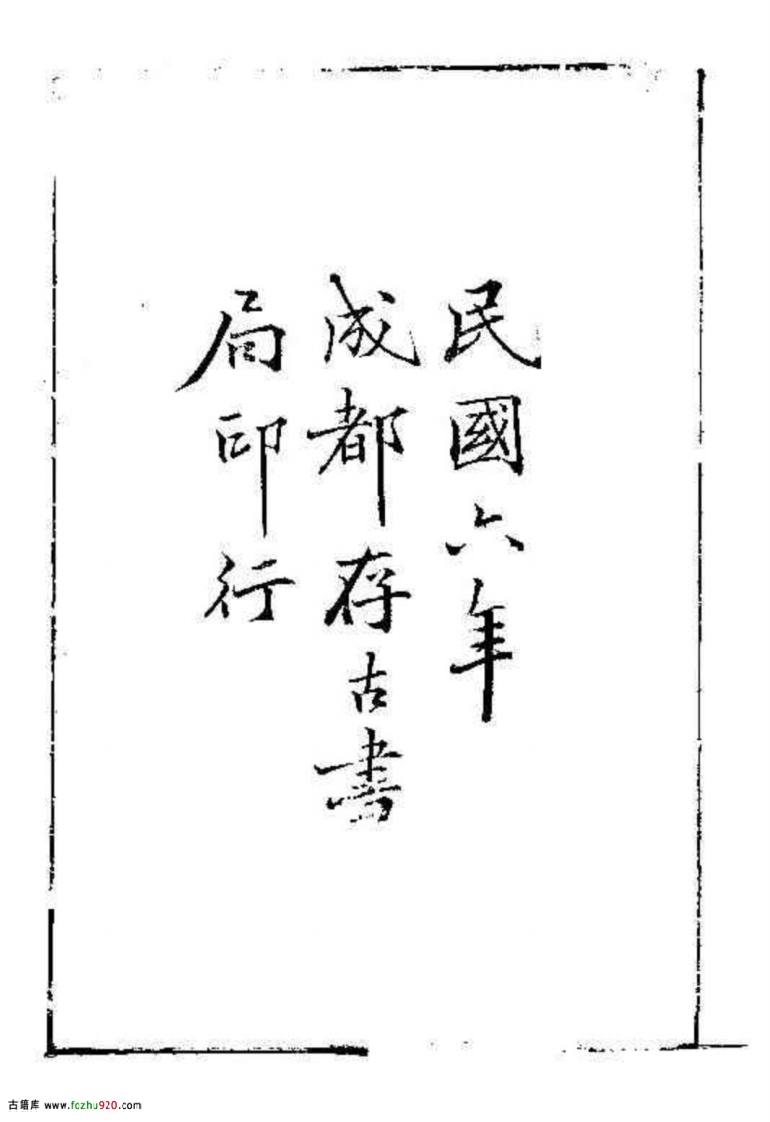 民國六年
成都存古書
局印行
古籍库 www.fozhu920.com